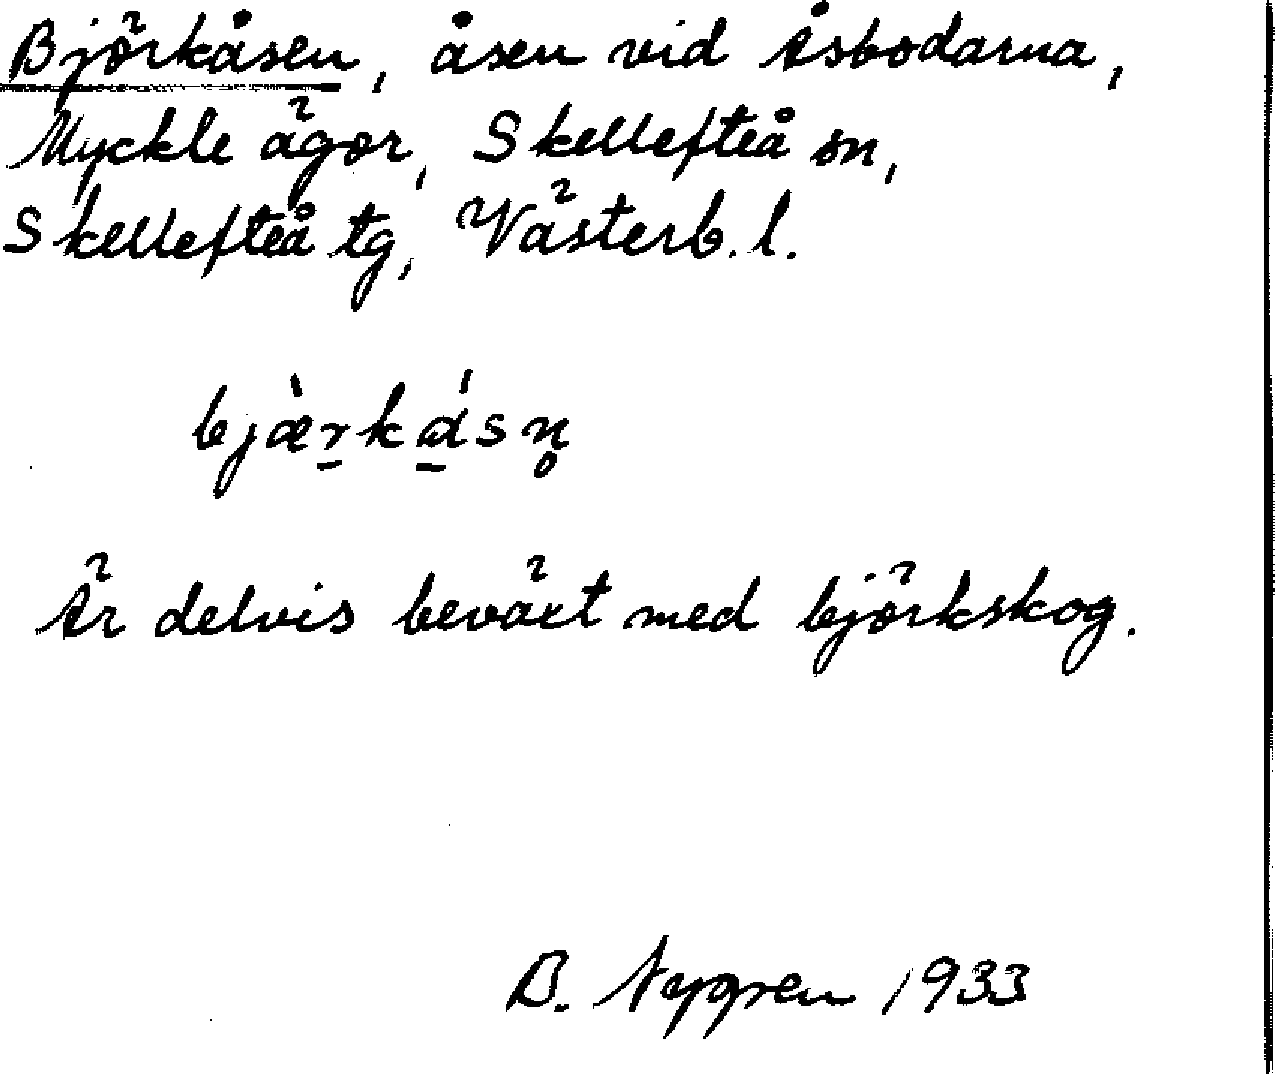 Björkåsen, åsen vid Åsbodarna,
Myckle ägor, Skellefteå sn,
Skellefteå tg, Västerb. l.
bjæ̀r̠ka̠̍sn̥
Är delvis beväxt med björkskog.
B. Nygren 1933